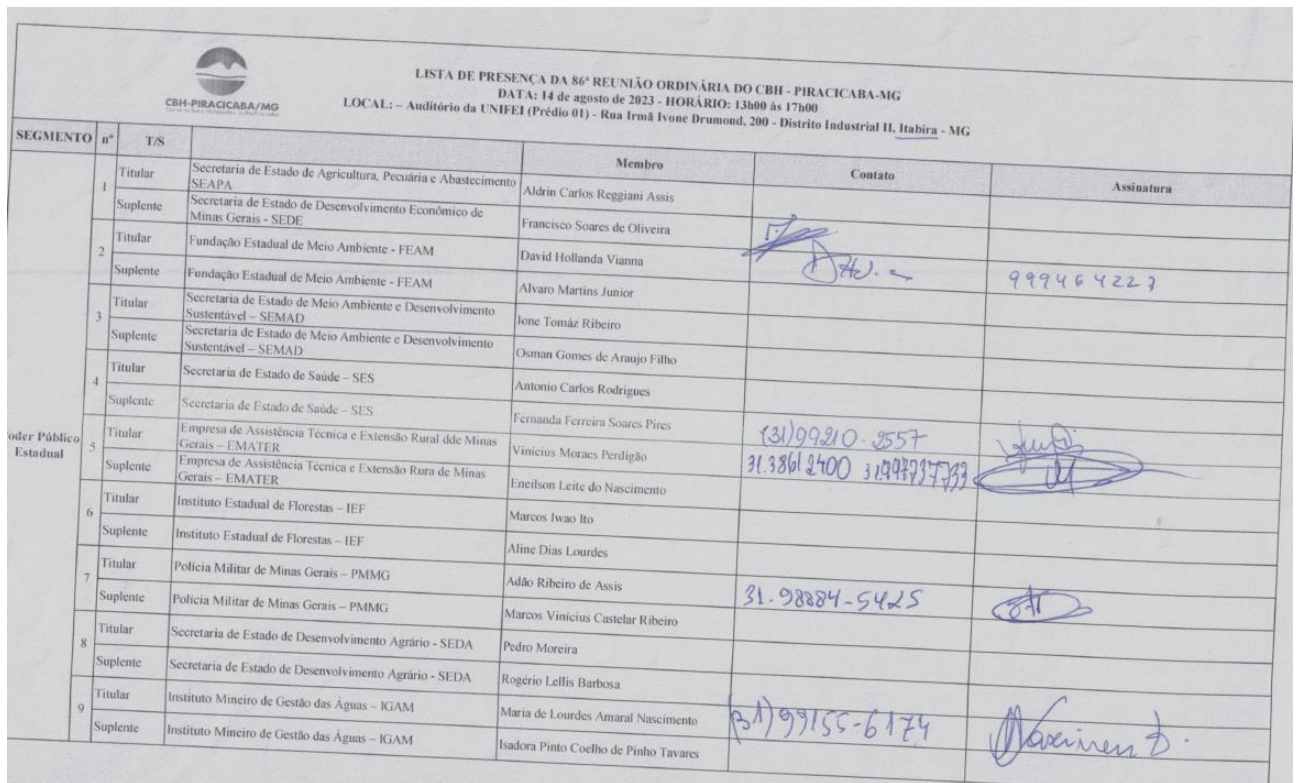 CBH-PIRACICABA/MG
LISTA DE PRESENÇA DA 86ª REUNIÃO ORDINÁRIA DO CBH - PIRACICABA-MG
DATA: 14 de agosto de 2023 - HORÁRIO: 13h00 às 17h00
LOCAL: – Auditório da UNIFEI (Prédio 01) - Rua Irmã Ivone Drumond, 200 - Distrito Industrial II, Itabira - MG
SEGMENTO nº T/S Membro Contato Assinatura
oder Público
Estadual
1 Titular Secretaria de Estado de Agricultura, Pecuária e Abastecimento
SEAPA Aldrin Carlos Reggiani Assis
Suplente Secretaria de Estado de Desenvolvimento Econômico de
Minas Gerais - SEDE Francisco Soares de Oliveira
2 Titular Fundação Estadual de Meio Ambiente - FEAM David Hollanda Vianna
Suplente Fundação Estadual de Meio Ambiente - FEAM Alvaro Martins Junior 999464227
3 Titular Secretaria de Estado de Meio Ambiente e Desenvolvimento
Sustentável – SEMAD Ione Tomáz Ribeiro
Suplente Secretaria de Estado de Meio Ambiente e Desenvolvimento
Sustentável – SEMAD Osman Gomes de Araujo Filho
4 Titular Secretaria de Estado de Saúde – SES Antonio Carlos Rodrigues
Suplente Secretaria de Estado de Saúde – SES Fernanda Ferreira Soares Pires
5 Titular Empresa de Assistência Técnica e Extensão Rural dde Minas
Gerais – EMATER Vinícius Moraes Perdigão (31)99210-2557
Suplente Empresa de Assistência Técnica e Extensão Rura de Minas
Gerais – EMATER Eneilson Leite do Nascimento 31.3861 2400
6 Titular Instituto Estadual de Florestas – IEF Marcos Iwao Ito
Suplente Instituto Estadual de Florestas – IEF Aline Dias Lourdes
7 Titular Polícia Militar de Minas Gerais – PMMG Adão Ribeiro de Assis
Suplente Polícia Militar de Minas Gerais – PMMG Marcos Vinicius Castelar Ribeiro 31-98884-5425
8 Titular Secretaria de Estado de Desenvolvimento Agrário - SEDA Pedro Moreira
Suplente Secretaria de Estado de Desenvolvimento Agrário - SEDA Rogério Lellis Barbosa
9 Titular Instituto Mineiro de Gestão das Águas – IGAM Maria de Lourdes Amaral Nascimento (31)99155-6174
Suplente Instituto Mineiro de Gestão das Águas – IGAM Isadora Pinto Coelho de Pinho Tavares